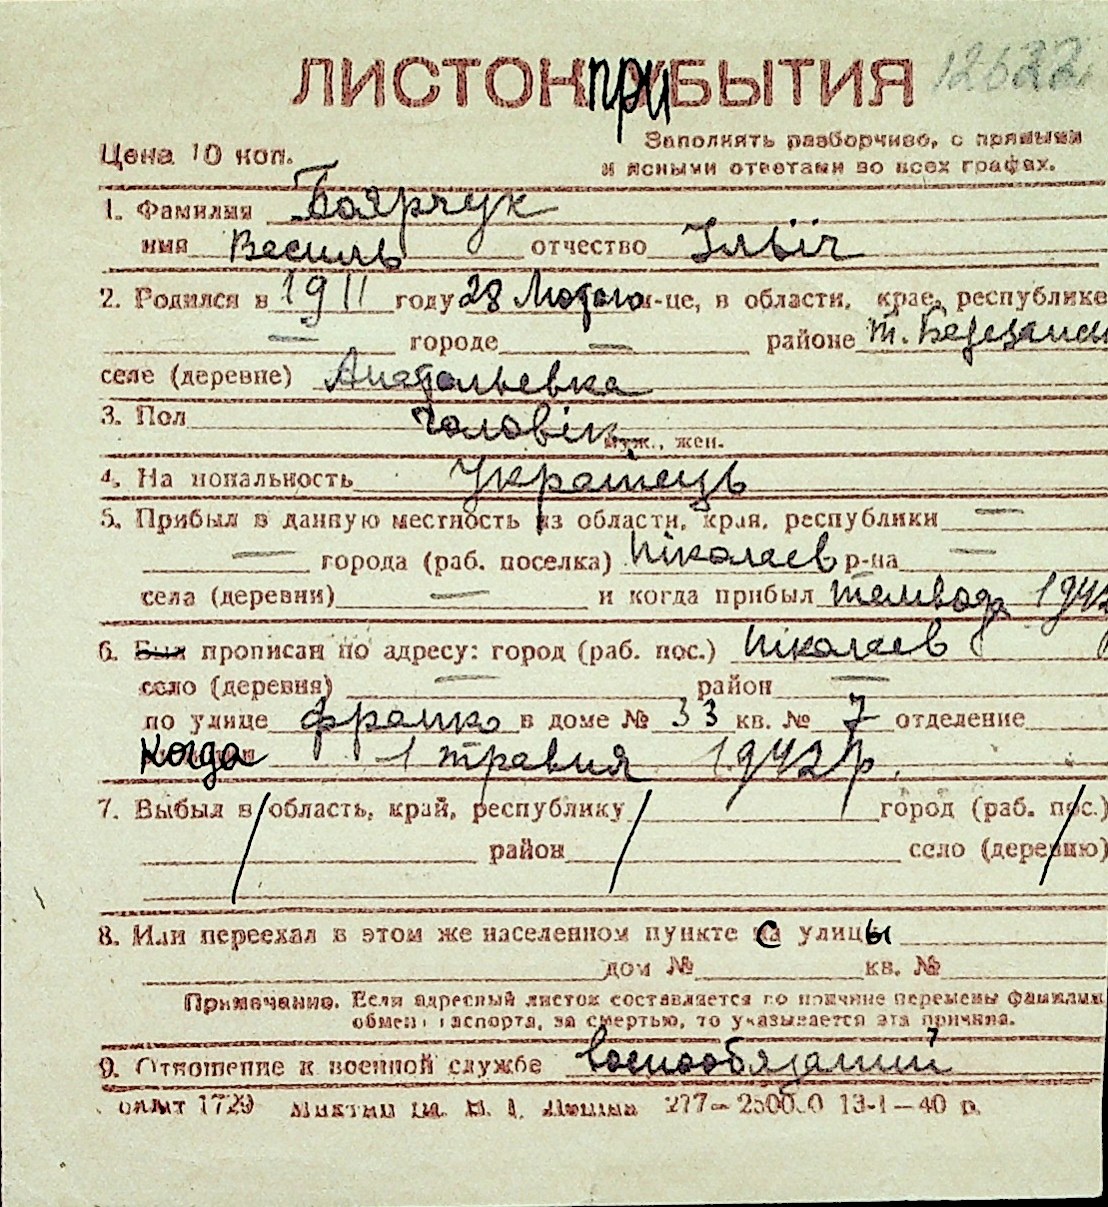 ЛИСТОК ПРИБЫТИЯ 12622
Заполнять разборчиво, с прямыми
Цена 10 коп. и ясными ответами во всех графах.
1. Фамилия Боярчук
имя Василь отчество Ілліч
2. Родился в 1911 году 28 Лютого м-це, в области, крае, республике
— городе — районе т. Березанськ
селе (деревне) Анатольевка
3. Пол Чоловік
муж., жен.
4. На иональность Українець
5. Прибыл в данную местность из области, края, республики —
— города (раб. поселка) Ніколаев р-на —
села (деревни) — и когда прибыл 1942
6. Был прописан по адресу: город (раб. пос.) Ніколаев
село (деревня) — район —
по улице Франко в доме № 33 кв. № 7 отделение
Когда 1 травня 1942 р.
7. Выбыл в область, край, республику город (раб. пос.)
район село (деревню)
8. Или переехал в этом же населенном пункте с улицы
дом № кв. №
Примечание. Если адресный листок составляется по причине перемены фамилии,
обмен паспорта, за смертью, то указывается эта причина.
9. Отношение к военной службе военообязаний
1729 277— 13-I—40 р.